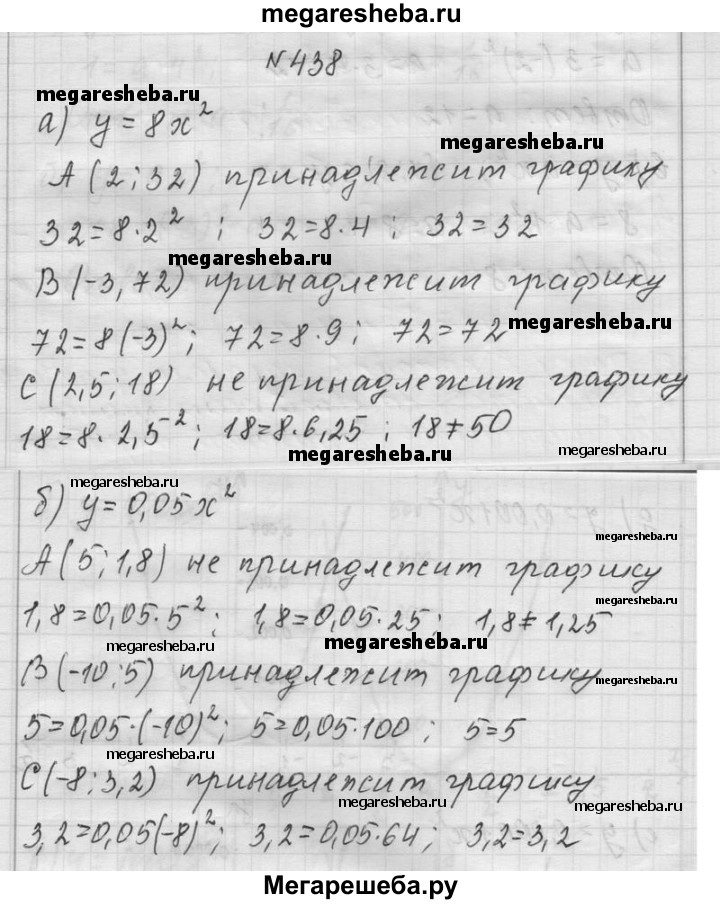 megaresheba.ru
№438
megaresheba.ru
а) y = 8x²
megaresheba.ru
A (2; 32) принадлежит графику
32 = 8·2² ; 32 = 8·4 ; 32 = 32
megaresheba.ru
B (-3, 72) принадлежит графику
72 = 8(-3)²; 72 = 8·9; 72 = 72
megaresheba.ru
C (2,5; 18) не принадлежит графику
18 = 8·2,5²; 18 = 8·6,25 ; 18 ≠ 50
megaresheba.ru
megaresheba.ru
megaresheba.ru
б) y = 0,05x²
megaresheba.ru
A (5; 1,8) не принадлежит графику
megaresheba.ru
1,8 = 0,05·5²; 1,8 = 0,05·25; 1,8 ≠ 1,25
megaresheba.ru
megaresheba.ru
B (-10; 5) принадлежит графику
megaresheba.ru
5 = 0,05·(-10)²; 5 = 0,05·100 ; 5 = 5
megaresheba.ru
C (-8; 3,2) принадлежит графику
megaresheba.ru
megaresheba.ru
3,2 = 0,05(-8)²; 3,2 = 0,05·64; 3,2 = 3,2
Мегарешеба.ру